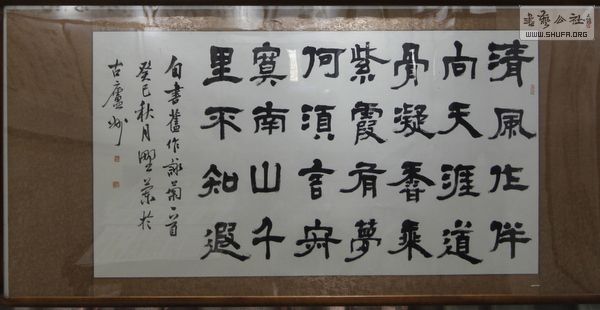 清風作伴
向天涯道
骨凝香乘
紫霞有夢
何須言寂
寞南山千
里不知遐
自書舊作詠菊一首
癸巳秋月於
古廬州
书艺公社
WWW.SHUFA.ORG